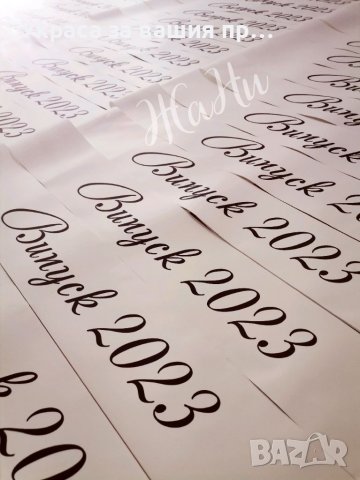 Украса за вашия пр...
ЖаНи
Випуск 2023
Випуск 2023
Випуск 2023
Випуск 2023
Випуск 2023
Випуск 2023
Випуск 2023
BAZAR